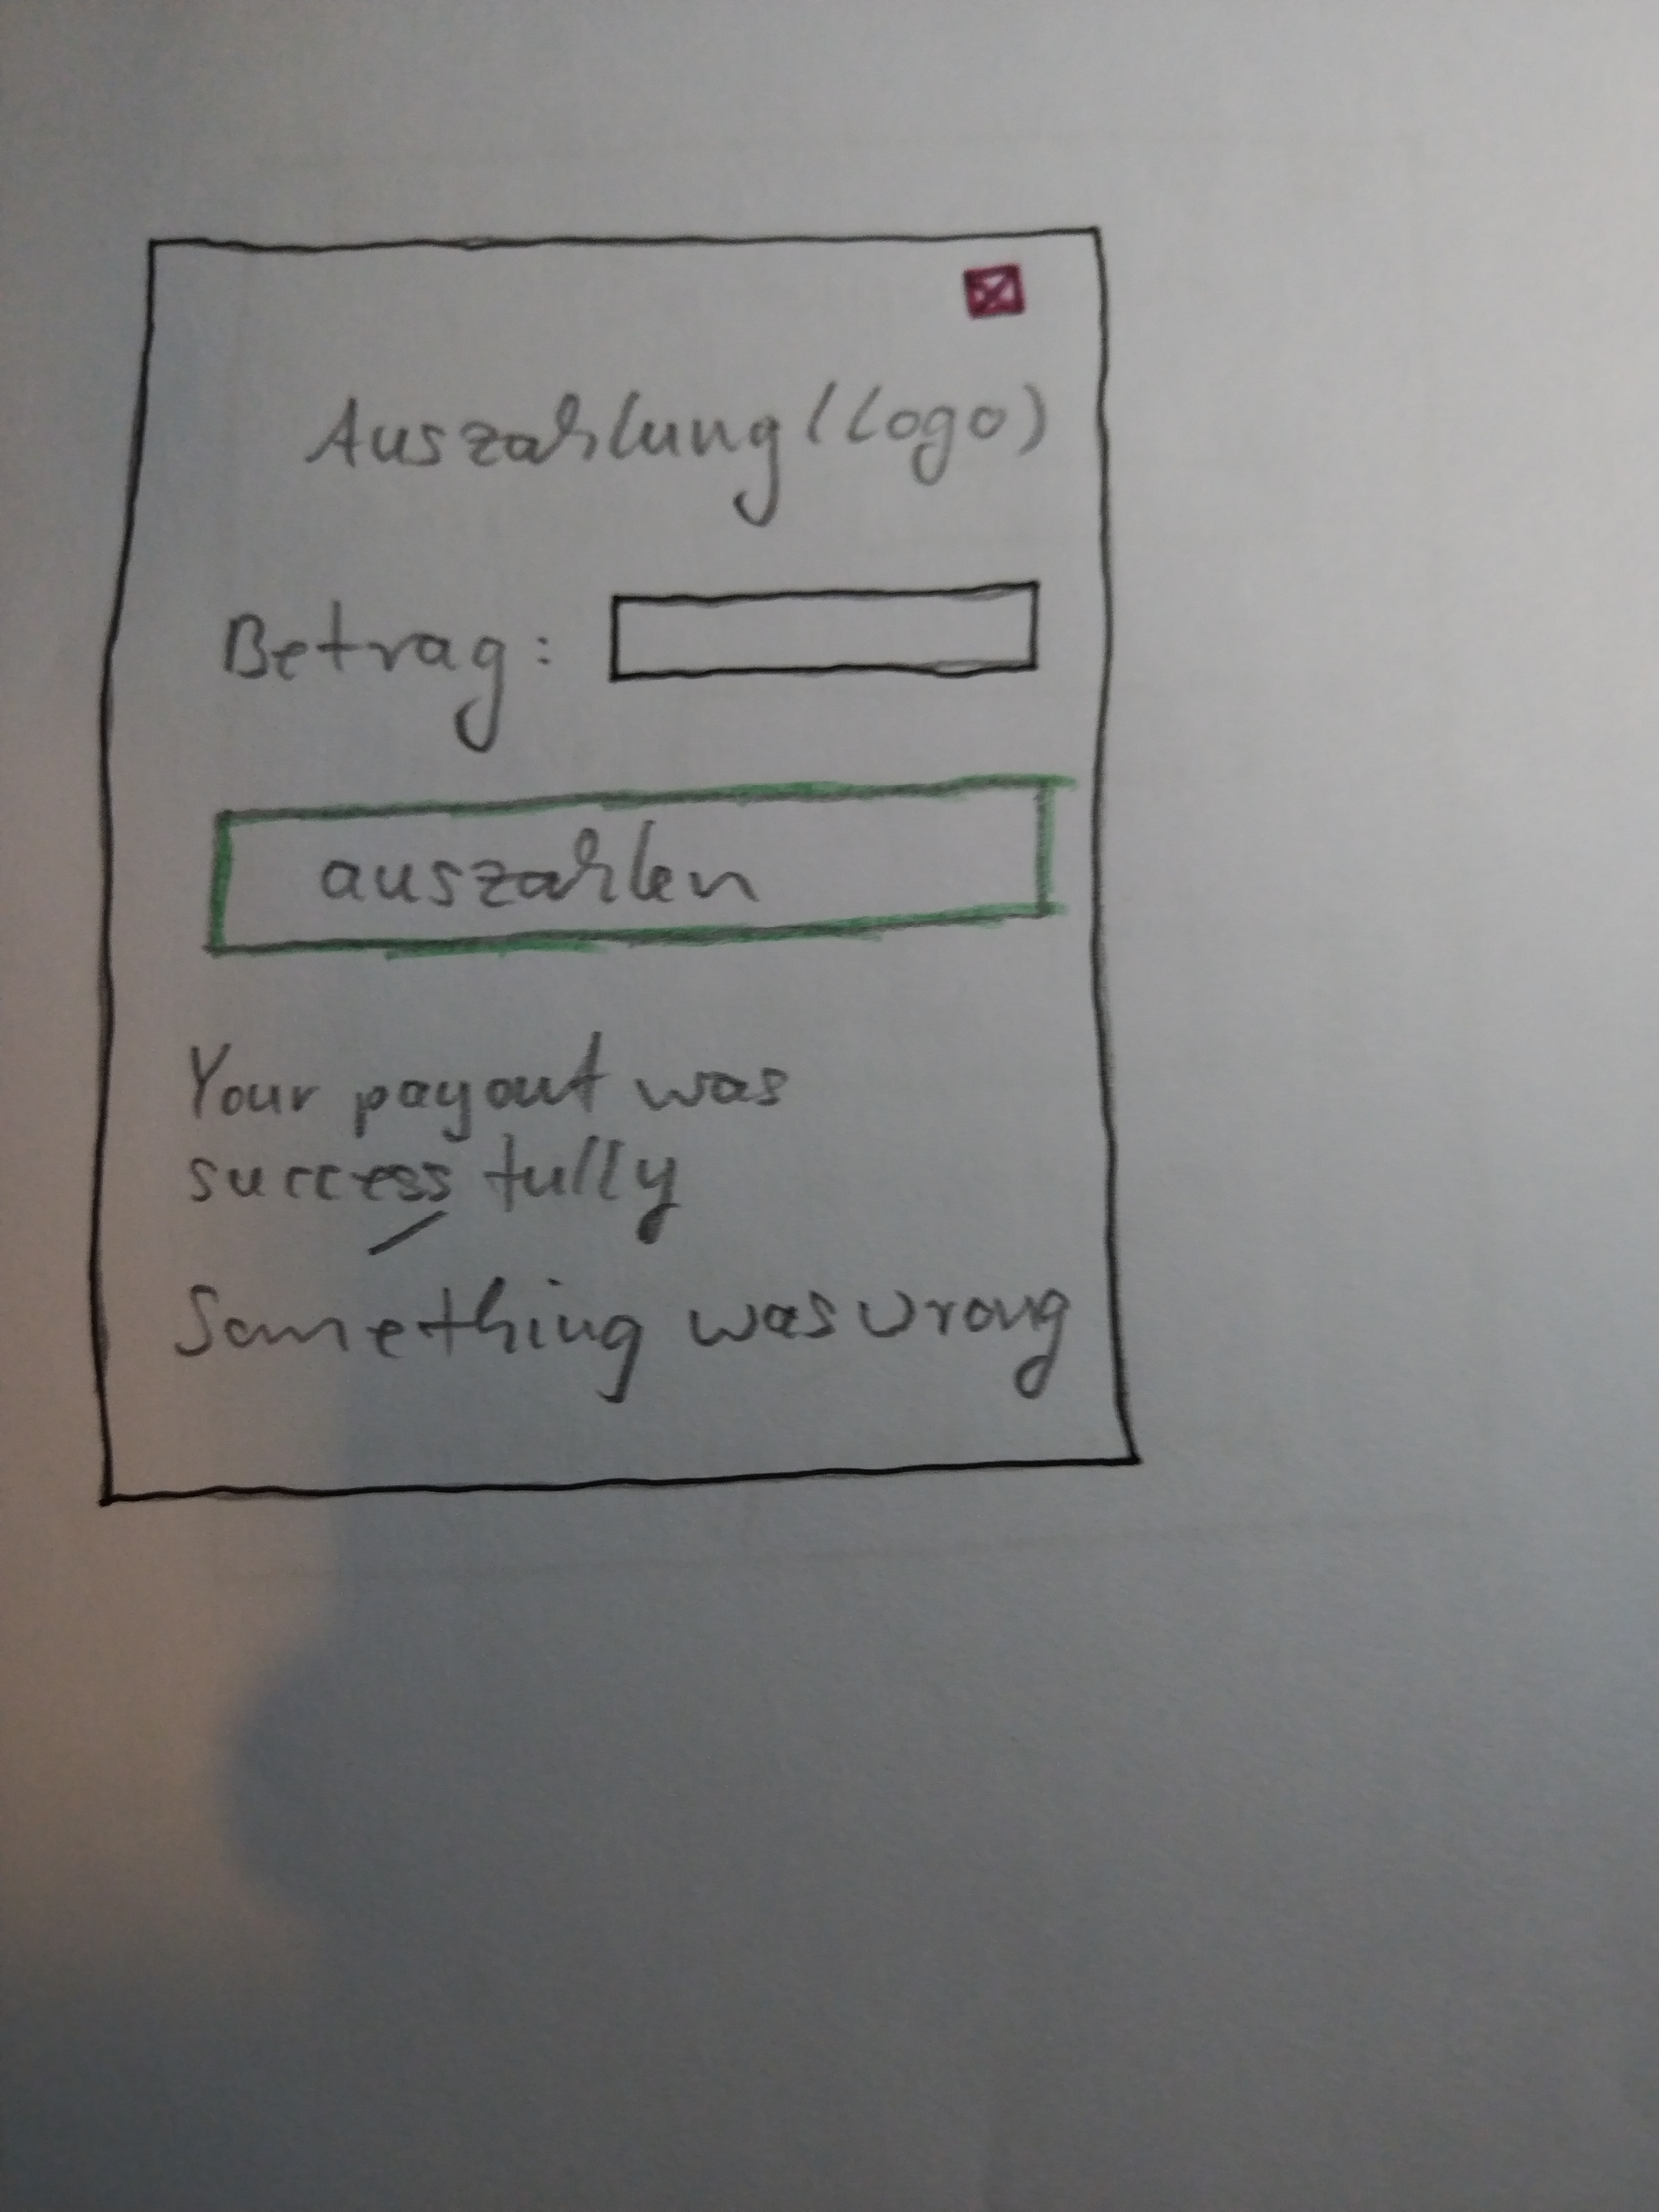 Auszahlung (Logo)
Betrag:
auszahlen
Your payout was
successfully
/
Something was wrong